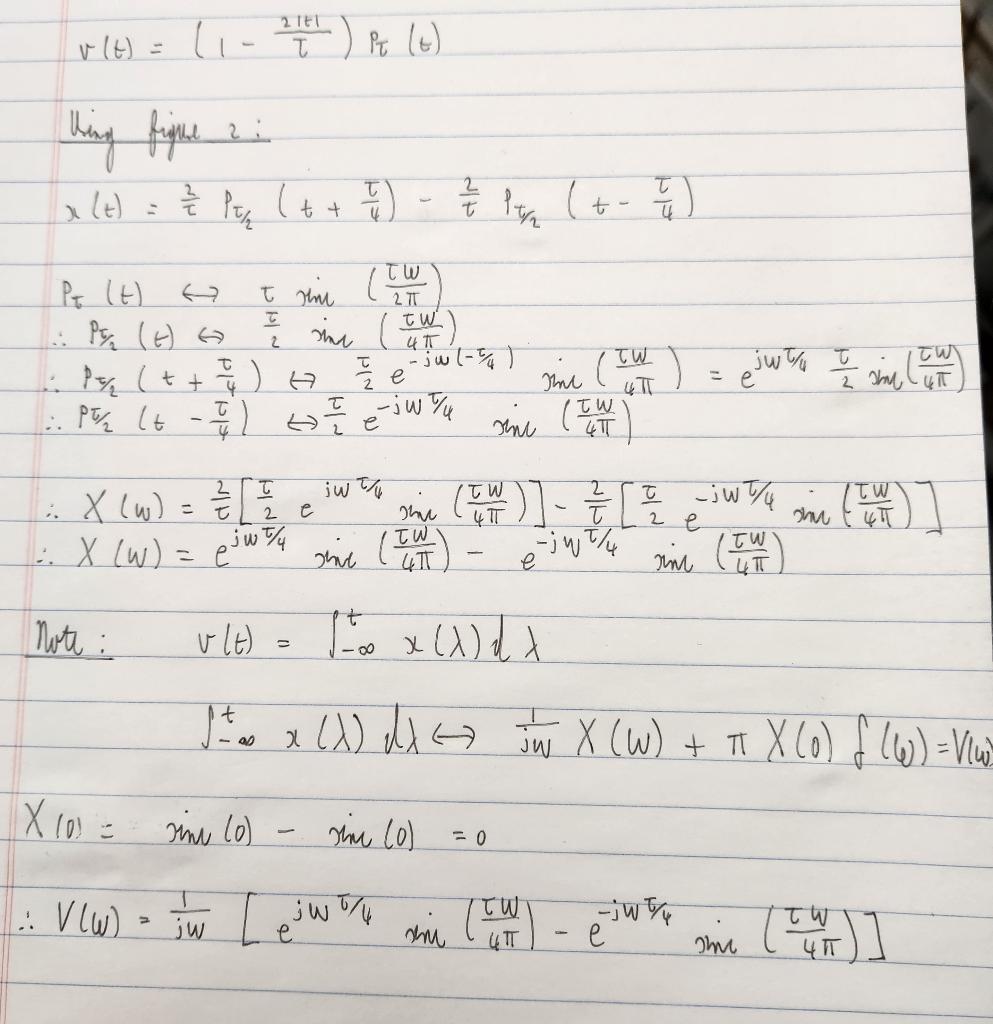 v(t) = (1 - 2|t|/τ) Pτ (t)
Using figure 2 :
x(t) = 2/τ Pτ/2 (t + τ/4) - 2/τ Pτ/2 (t - τ/4)
Pτ (t) ↔ τ sinc (τω/2π)
∴ Pτ/2 (t) ↔ τ/2 sinc (τω/4π)
∴ Pτ/2 (t + τ/4) ↔ τ/2 e^{-jω(-τ/4)} sinc (τω/4π) = e^{jωτ/4} τ/2 sinc (τω/4π)
∴ Pτ/2 (t - τ/4) ↔ τ/2 e^{-jωτ/4} sinc (τω/4π)
∴ X(ω) = 2/τ [τ/2 e^{jωτ/4} sinc (τω/4π)] - 2/τ [τ/2 e^{-jωτ/4} sinc (τω/4π)]
∴ X(ω) = e^{jωτ/4} sinc (τω/4π) - e^{-jωτ/4} sinc (τω/4π)
Note : v(t) = ∫_{-∞}^{t} x(λ) dλ
∫_{-∞}^{t} x(λ) dλ ↔ 1/jω X(ω) + π X(0) δ(ω) = V(ω)
X(0) = sinc (0) - sinc (0) = 0
∴ V(ω) = 1/jω [e^{jωτ/4} sinc (τω/4π) - e^{-jωτ/4} sinc (τω/4π)]